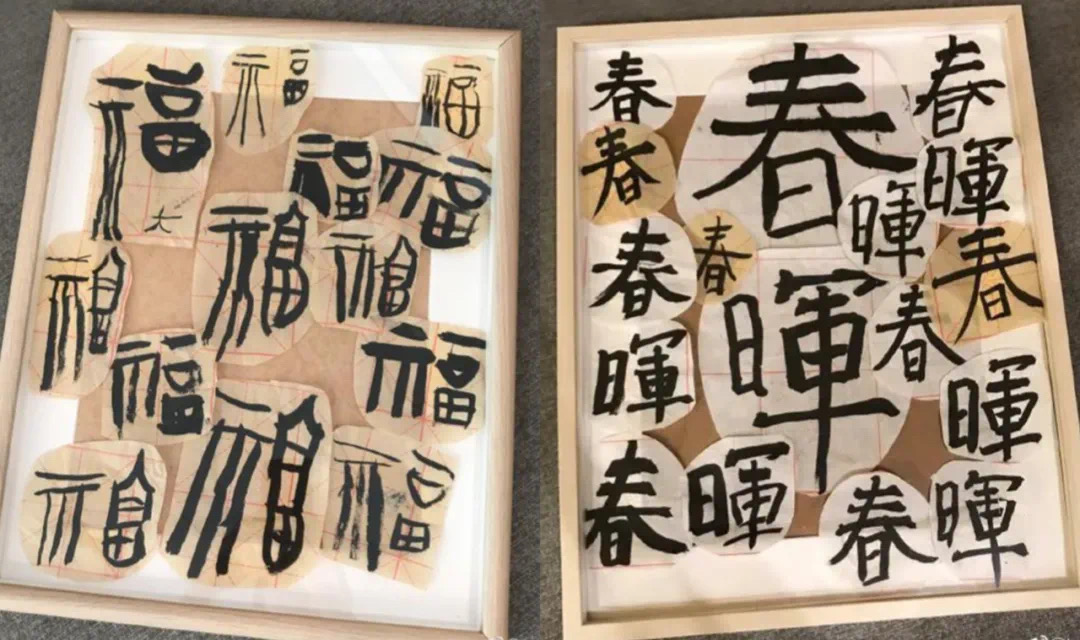 福
福
福
福
福
大
福
福
福
福
福
福
福
福
春
春
春
春
暉
暉
春
春
春
暉
春
暉
暉
春
暉
春
暉